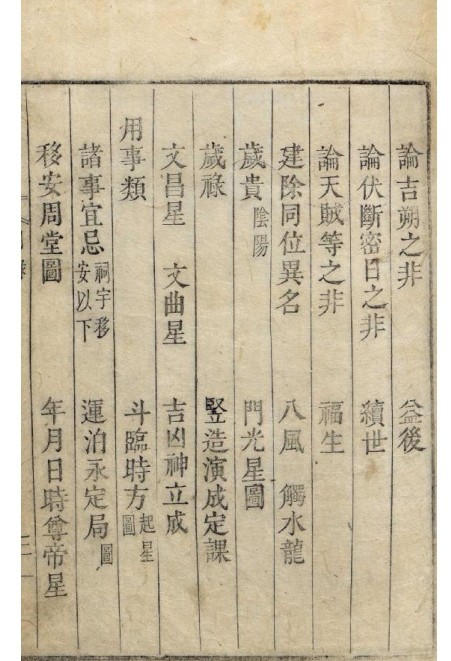 論吉朔之非 益後
論伏斷密日之非 續世
論天賊等之非 福生
建除同位異名 八風 觸水龍
歲貴陰陽 門光星圖
歲祿 竪造演成定課
文昌星 文曲星 吉凶神立成
用事類 斗臨時方起星圖
諸事宜忌祠宇移安以下 運泊永定局圖
移安周堂圖 年月日時尊帝星